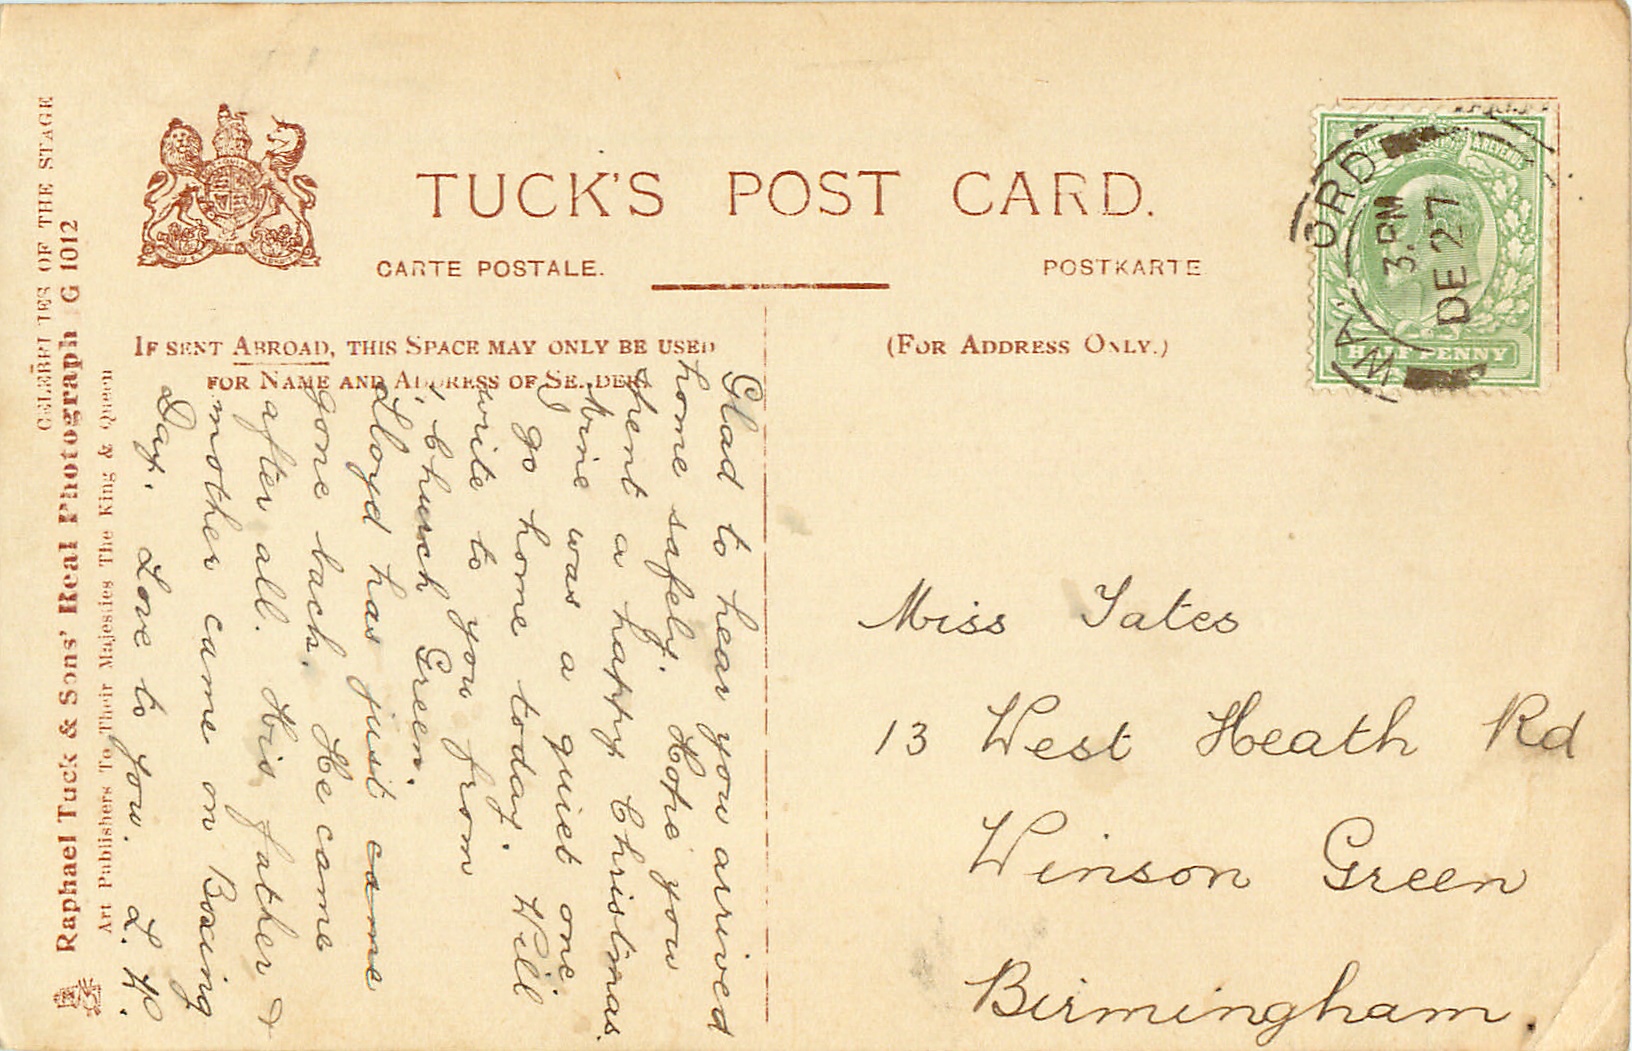 TUCK'S POST CARD.
CARTE POSTALE.
POSTKARTE
IF SENT ABROAD, THIS SPACE MAY ONLY BE USED
FOR NAME AND ADDRESS OF SENDER.
(FOR ADDRESS ONLY.)
CELEBRITIES OF THE STAGE
Raphael Tuck & Sons' Real Photograph G 1012
Art Publishers To Their Majesties The King & Queen
POSTAGE & REVENUE
HALF PENNY
3. PM
DE 27
Glad to hear you arrived
home safely. Hope you
spent a happy Christmas.
Mine was a quiet one.
I go home today. Will
write to you from
Church Green.
Lloyd has just came
gone back. He came
after all. His father &
mother came on Boxing
Day. Love to you. L. H.
Miss Yates
13 West Heath Rd
Winson Green
Birmingham.